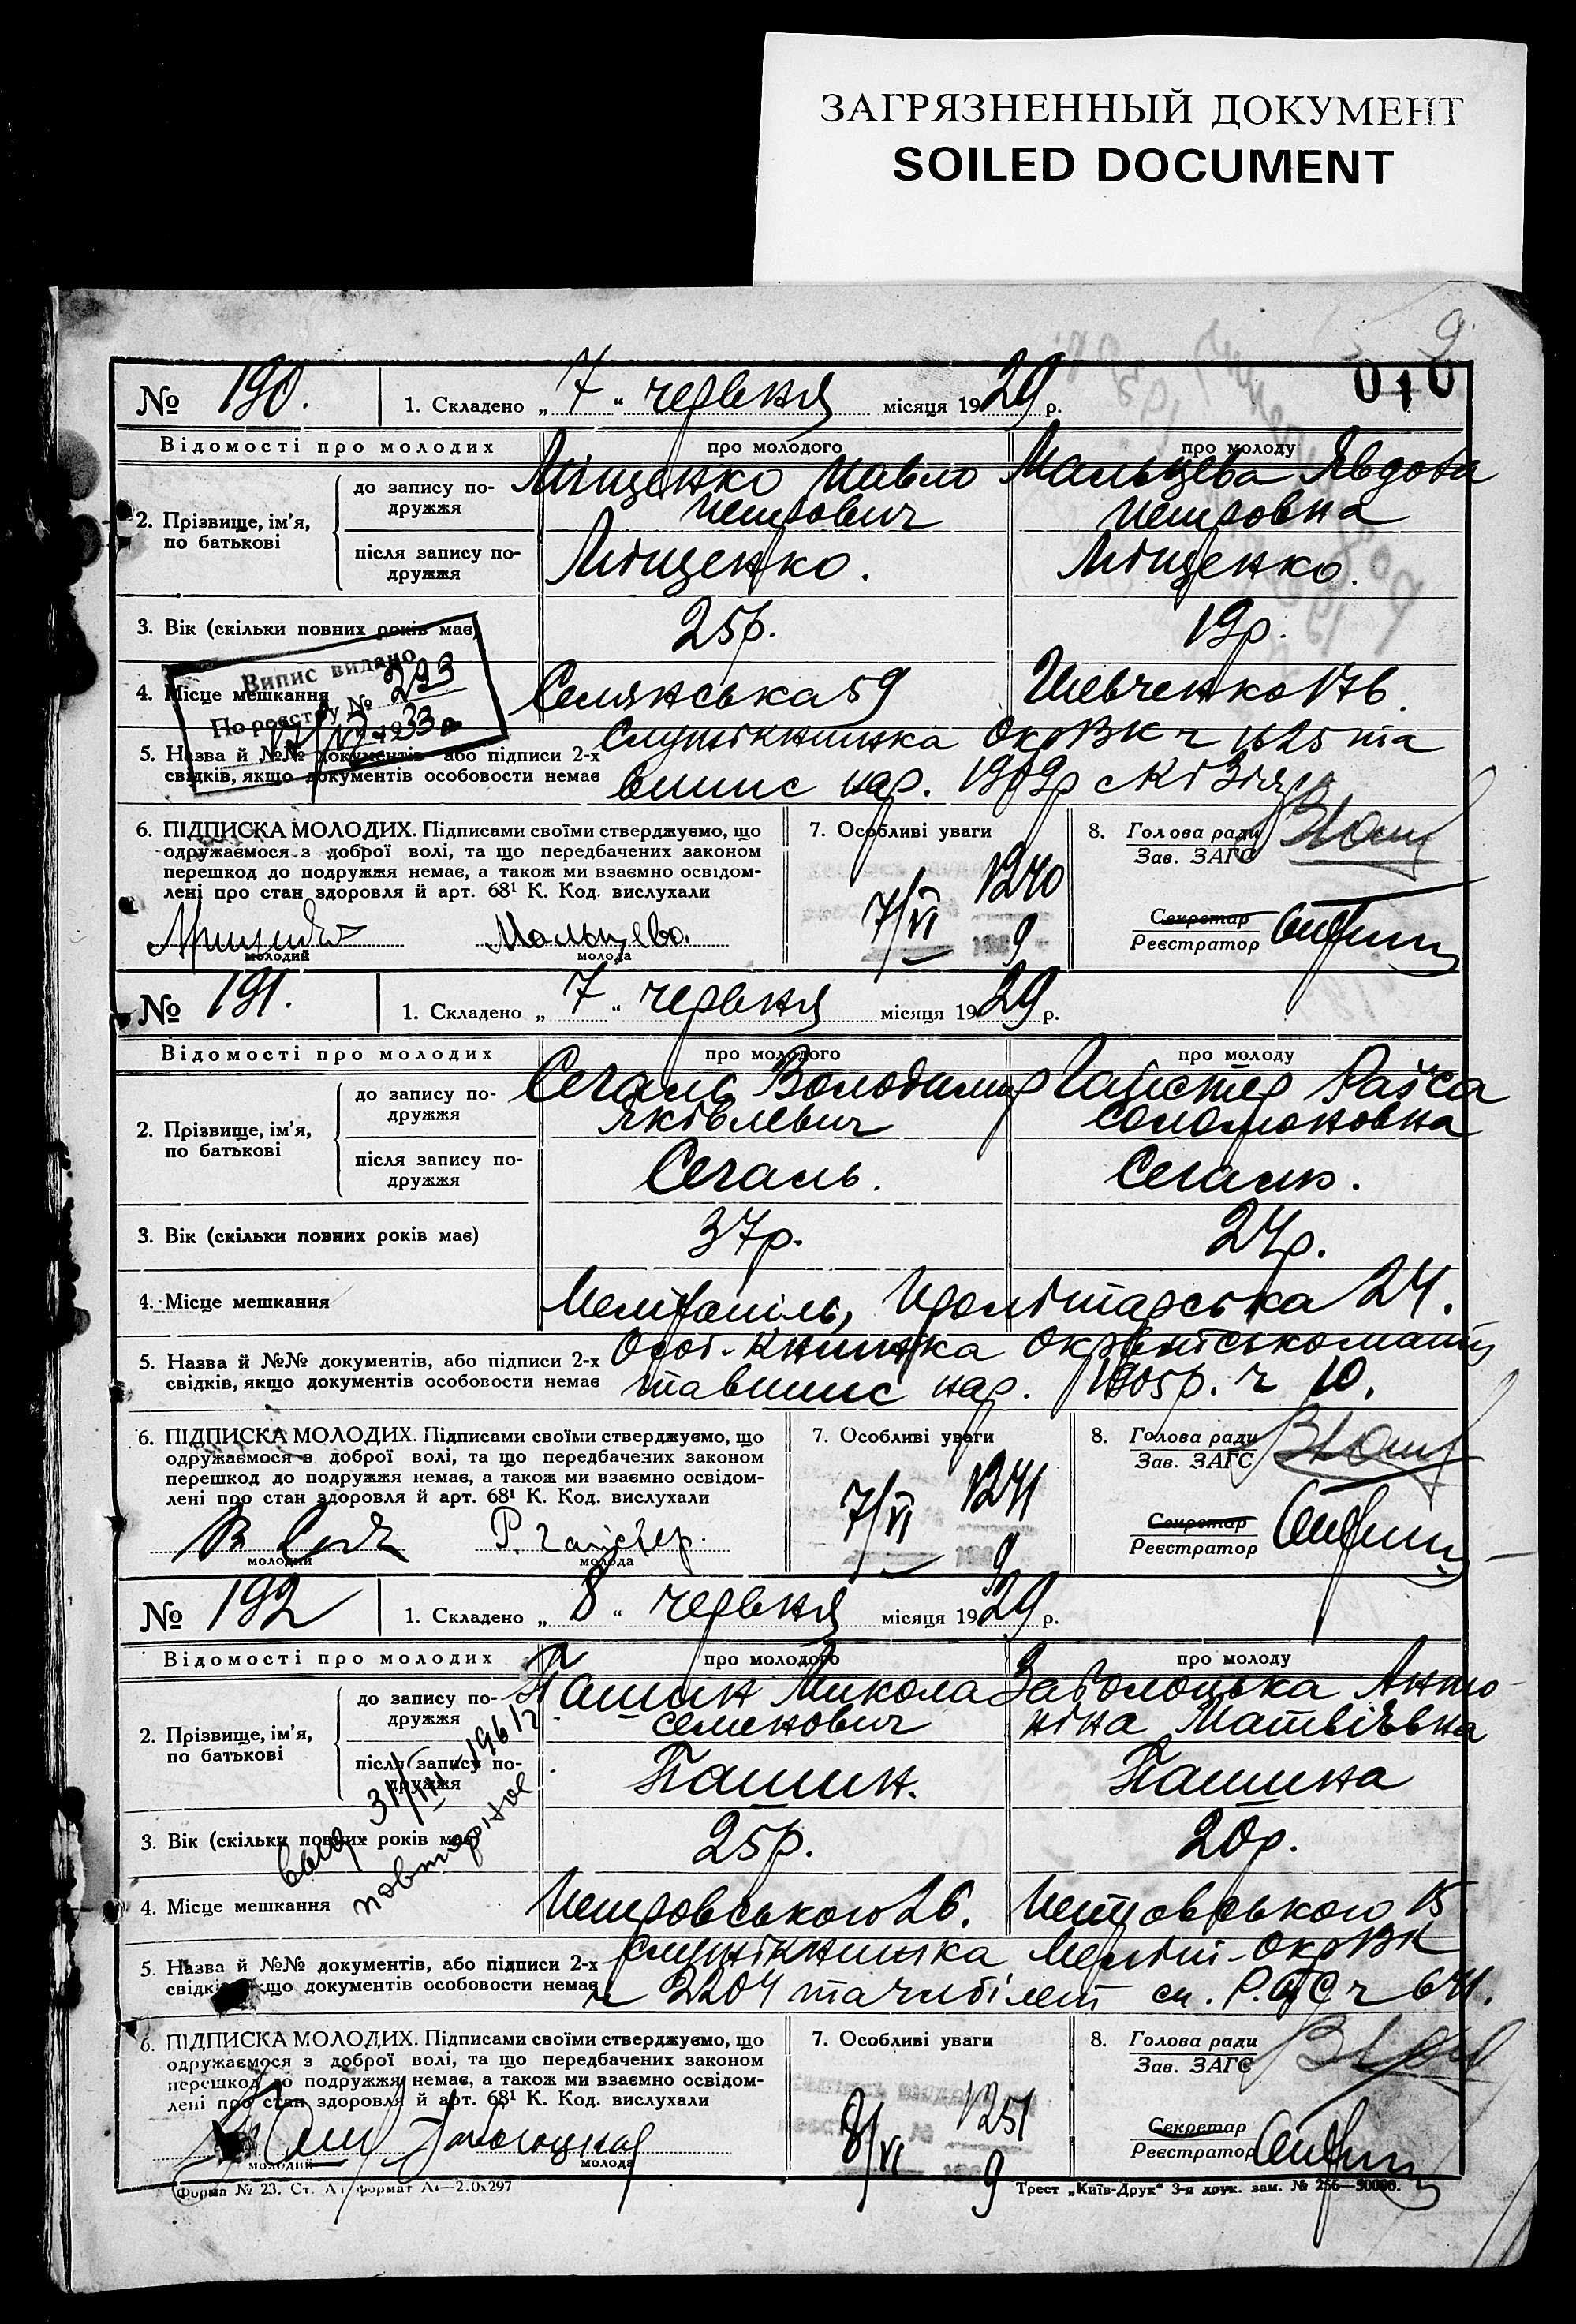 ЗАГРЯЗНЕННЫЙ ДОКУМЕНТ
SOILED DOCUMENT
9
010
№ 190. 1. Складено „ 7 “ червня місяця 1929 р.
Відомості про молодих про молодого про молоду
2. Прізвище, ім'я, по батькові
до запису по-дружжя Міщенко Павло Петрович Мальцева Явдоха Петровна
після запису по-дружжя Міщенко. Міщенко.
3. Вік (скільки повних років має) 25р. 19р.
Випис видано
По реєстру № 293
1933
4. Місце мешкання Селянська 59 Шевченко 176.
5. Назва й №№ документів, або підписи 2-х Служкнижка ОкрВК ч 1625 та
свідків, якщо документів особовости немає випис нар. 1909р
6. ПІДПИСКА МОЛОДИХ. Підписами своїми стверджуємо, що
одружаємося з доброї волі, та що передбачених законом
перешкод до подружжя немає, а також ми взаємно освідом-
лені про стан здоровля й арт. 68¹ К. Код. вислухали
молодий Мальцева. молода
7. Особливі уваги
7/VI 1240
9
8. Голова ради
Зав. ЗАГС
Секретар
Реєстратор
№ 191. 1. Складено „ 7 “ червня місяця 1929 р.
Відомості про молодих про молодого про молоду
2. Прізвище, ім'я, по батькові
до запису по-дружжя Сегаль Володимир Яківлевич Гайстер Раїса Соломоновна
після запису по-дружжя Сегаль. Сегаль.
3. Вік (скільки повних років має) 37р. 24р.
4. Місце мешкання Мелітопіль, Пролітарська 24.
5. Назва й №№ документів, або підписи 2-х Особ. Книжка
свідків, якщо документів особовости немає та випис нар. 1905р. ч 10.
6. ПІДПИСКА МОЛОДИХ. Підписами своїми стверджуємо, що
одружаємося з доброї волі, та що передбачених законом
перешкод до подружжя немає, а також ми взаємно освідом-
лені про стан здоровля й арт. 68¹ К. Код. вислухали
молодий Р. Гайстер. молода
7. Особливі уваги
7/VI 1241
9
8. Голова ради
Зав. ЗАГС
Секретар
Реєстратор
№ 192 1. Складено „ 8 “ червня місяця 1929 р.
Відомості про молодих про молодого про молоду
2. Прізвище, ім'я, по батькові
до запису по-дружжя Пашин Микола Семенович Заболоцька Анто-ніна Матвіївна
після запису по-дружжя Пашин. Пашина
3. Вік (скільки повних років має) 25р. 20р.
выд. 31/III 1961г
повторное
4. Місце мешкання Петровського 26. Петровського 15
5. Назва й №№ документів, або підписи 2-х Служкнижка Меліт. ОкрВК
свідків, якщо документів особовости немає ч 2204 та члбілет сп. Р.ТС ч 641.
6. ПІДПИСКА МОЛОДИХ. Підписами своїми стверджуємо, що
одружаємося з доброї волі, та що передбачених законом
перешкод до подружжя немає, а також ми взаємно освідом-
лені про стан здоровля й арт. 68¹ К. Код. вислухали
молодий Заболоцкая молода
7. Особливі уваги
8/VI 1251
9
8. Голова ради
Зав. ЗАГС
Секретар
Реєстратор
Форма № 23. Ст. формат Трест „Київ-Друк“ 3-я друк. зам. № 256—50000.